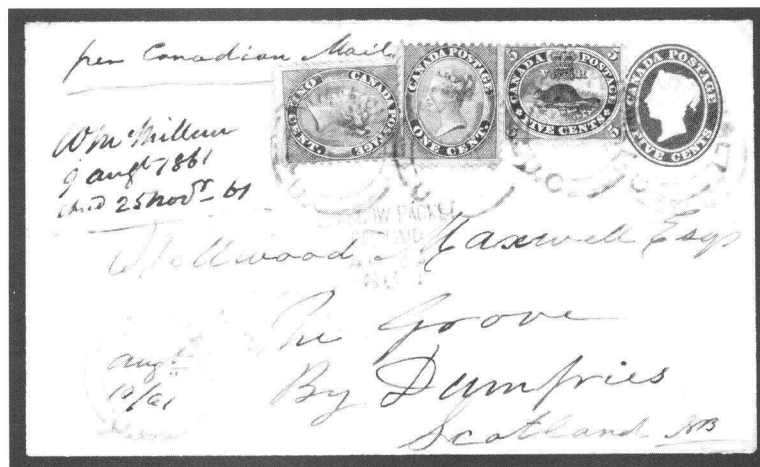 per Canadian Mail
CANADA POSTAGE
ONE CENT.
CANADA POSTAGE
ONE CENT.
5 CANADA POSTAGE 5
FIVE CENTS
5
CANADA POSTAGE
FIVE CENTS
Wm
9 augt 1861
25 Novr - 61
PACKET
Wellwood Maxwell Esqr
The Grove
augt
10/61
By Dumfries
Scotland NB